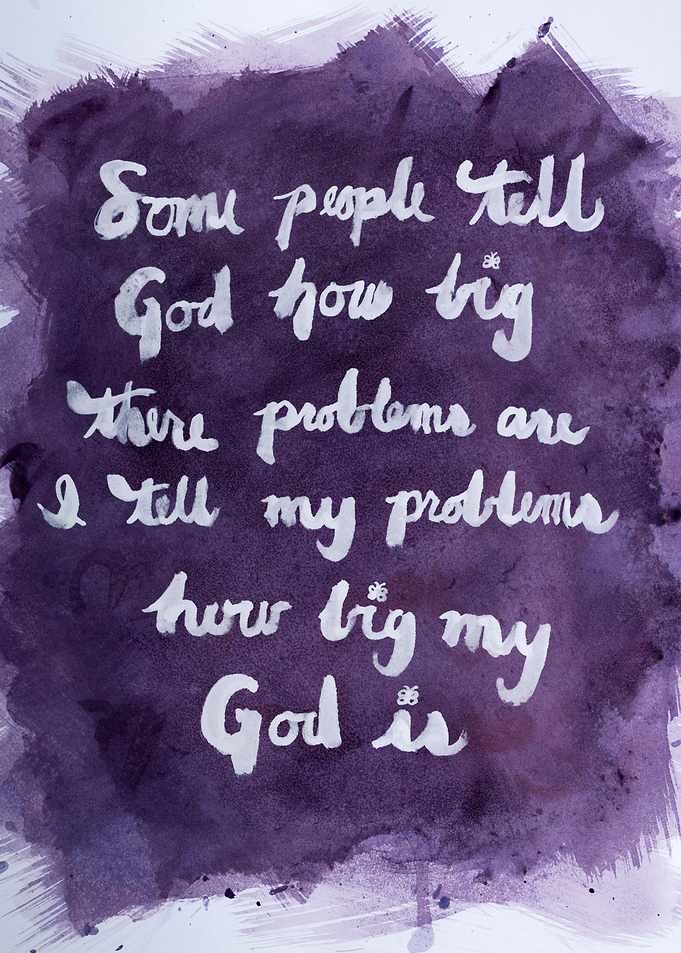 Some people tell
God how big
there problems are
I tell my problems
how big my
God is